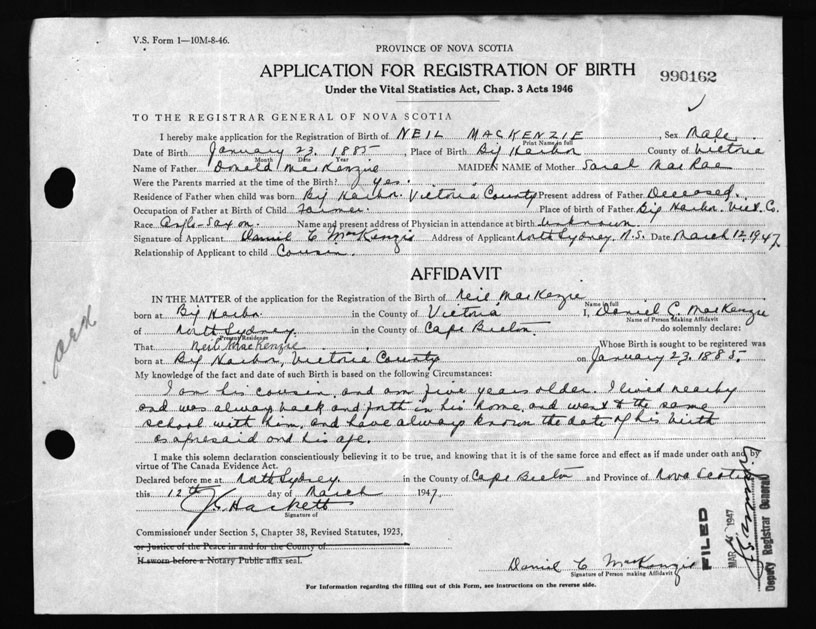 V.S. Form 1—10M-8-46.
PROVINCE OF NOVA SCOTIA
APPLICATION FOR REGISTRATION OF BIRTH
990162
Under the Vital Statistics Act, Chap. 3 Acts 1946
TO THE REGISTRAR GENERAL OF NOVA SCOTIA
I hereby make application for the Registration of Birth of NEIL MACKENZIE, Sex Male
Print Name in full
Date of Birth January 23, 1885, Place of Birth Big Harbor County of Victoria
Month Date Year
Name of Father Donald MacKenzie MAIDEN NAME of Mother Sarah MacRae
Were the Parents married at the time of the Birth? Yes.
Residence of Father when child was born Big Harbor. Victoria County Present address of Father Deceased.
Occupation of Father at Birth of Child Farmer. Place of birth of Father Big Harbor. Vict. Co.
Race Anglo-Saxon. Name and present address of Physician in attendance at birth Unknown.
Signature of Applicant Daniel C MacKenzie Address of Applicant North Sydney, N.S. Date March 12, 1947
Relationship of Applicant to child Cousin.
AFFIDAVIT
IN THE MATTER of the application for the Registration of the Birth of Neil MacKezie
Name in full
born at Big Harbor. in the County of Victoria I, Daniel C. MacKenzie
Name of Person Making Affidavit
of North Sydney. in the County of Cape Breton. do solemnly declare:
Present Residence
That Neil MacKenzie Whose Birth is sought to be registered was
born at Big Harbor, Victoria County on January 23, 1885.
My knowledge of the fact and date of such Birth is based on the following Circumstances:
I am his cousin, and am five years older. I lived nearby
and was always back and forth in his home, and went to the same
school with him, and have always known the date of his birth
as aforesaid and his age.
I make this solemn declaration conscientiously believing it to be true, and knowing that it is of the same force and effect as if made under oath and by
virtue of The Canada Evidence Act.
Declared before me at North Sydney. in the County of Cape Breton and Province of Nova Scotia
this 12th day of March 1947.
Hackett
Signature of
Commissioner under Section 5, Chapter 38, Revised Statutes, 1923,
or Justice of the Peace in and for the County of
If sworn before a Notary Public affix seal.
Daniel C MacKenzie
Signature of Person making Affidavit
For Information regarding the filling out of this Form, see instructions on the reverse side.
FILED
MAR 1947
Deputy Registrar General